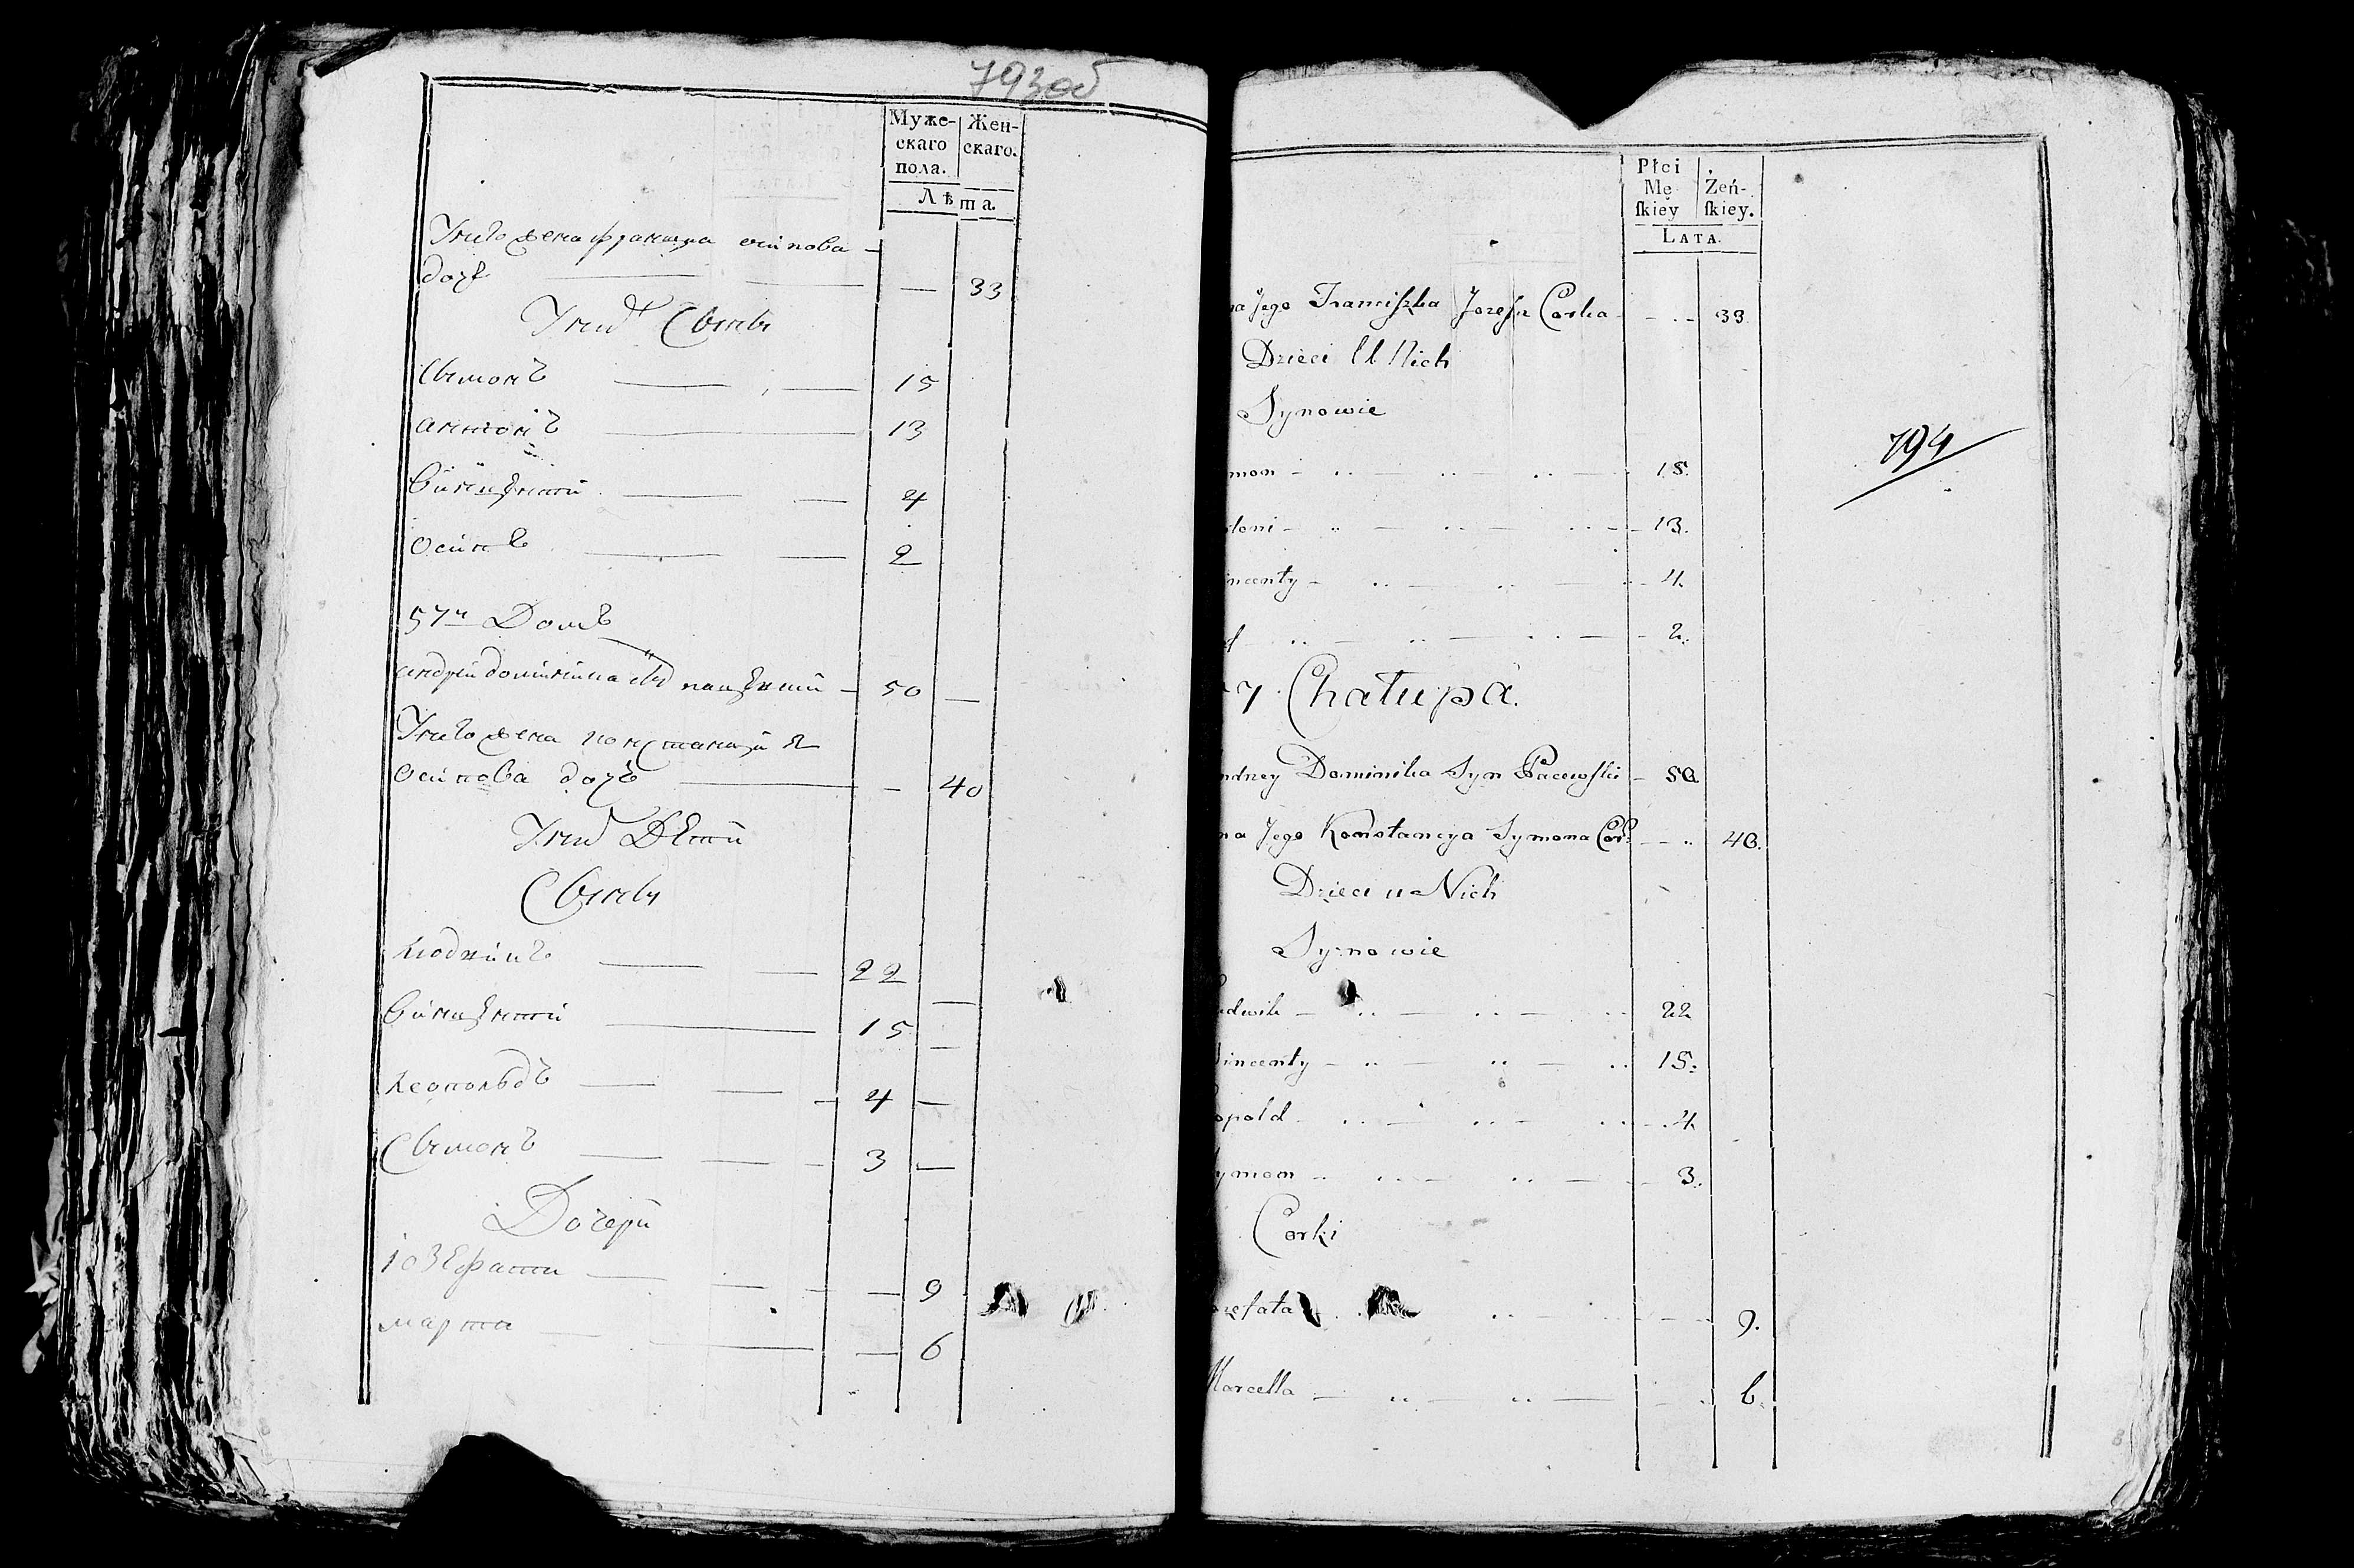 793об
Муже-
скаго
пола.
Жен-
скаго.
Лѣта.
У него жена францишка осипова
дочь — 33
У них Сыны
Сымонъ 15
антонъ 13
Винцентий 4
Осипъ 2
57й Домъ
андрей доминика сын пацевский 50 —
У него жена констанция
Осипова дочь — 40
У них Дѣти
Сыны
людвикъ 22 —
Винцентий 15 —
леопольдъ 4 —
Сымонъ 3 —
Дочери
іозефата — 9
марта — 6
Płci
Mę
ſkiey
Żeń-
ſkiey.
LATA.
na Jego Franciſzka Jozefa Corka 33.
Dzieci U Nich
Synowie
mon 15.
toni 13.
incenty 4.
f 2.
794
7 Chałupa.
ndrzey Dominika Syn Pacewſki 50.
na Jego Konstancya Symona Cor: 40.
Dzieci u Nich
Synowie
udwik 22
Wincenty 15.
opold 4.
ymon 3.
Corki
ozefata 9.
Marcella 6.